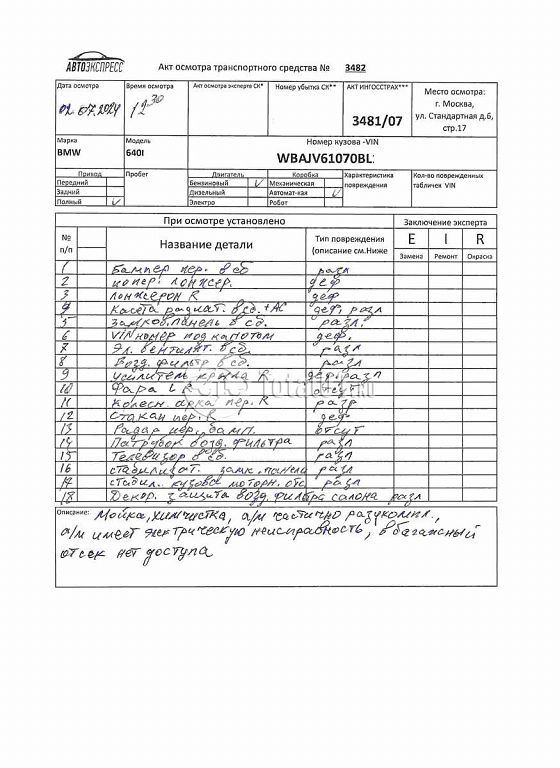 АВТОЭКСПРЕСС
Акт осмотра транспортного средства № 3482
Дата осмотра
02.07.2024
Время осмотра
12 30
Акт осмотра эксперта СК*
Номер убытка СК**
АКТ ИНГОССТРАХ***
3481/07
Место осмотра:
г. Москва,
ул. Стандартная д.6,
стр.17
Марка
BMW
Модель
640I
Номер кузова -VIN
WBAJV61070BL
Привод
Передний
Задний
Полный V
Пробег
Двигатель
Бензиновый V
Дизельный
Электро
Коробка
Механическая
Автомат-кая V
Робот
Характеристика
повреждения
Кол-во поврежденных
табличек VIN
При осмотре установлено
Заключение эксперта
№
п/п
Название детали
Тип повреждения
(описание см.Ниже
E I R
Замена Ремонт Окраска
1 Бампер пер. в сб разл
2 лонжер. деф
3 лонжерон R деф
4 Касета радиат. в сб. + АС деф, разл
5 Замков. панель в сб. разл.
6 VIN номер под капотом деф.
7 Эл. вентилят. в сб. разл
8 Возд. фильтр в сб. разл
9 усилитель крыла R деф, разл
10 Фара L R отсут
11 Колесн. арка пер. R разр
12 Стакан пер. R деф
13 Радар пер. бамп. отсут
14 Патрубок возд. фильтра разл
15 Телевизор в сб. разл
16 стабилизат. замк. панели разл
17 стабил. кузова моторн. отс разл
18 Декор. защита возд. фильтра салона разл
Total
Описание: Мойка, химчистка, а/м частично разукомпл.,
а/м имеет электрическую неисправность, в багажный
отсек нет доступа